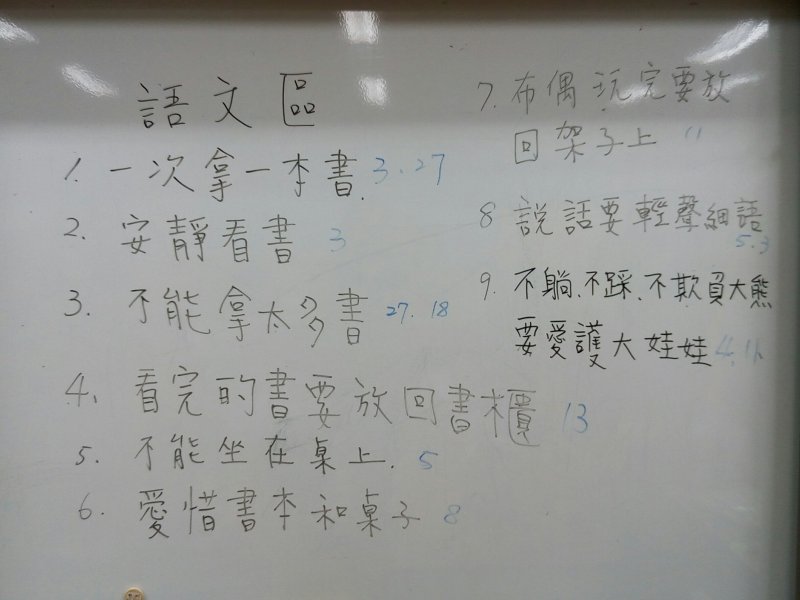 語文區
1. 一次拿一本書. 3、27
2. 安靜看書 3
3. 不能拿太多書 27. 18
4、看完的書要放回書櫃 13
5. 不能坐在桌上. 5
6. 愛惜書本和桌子 8
7. 布偶玩完要放
回架子上 11
8 說話要輕聲細語
5.3
9. 不躺、不踩、不欺負大熊
要愛護大娃娃 4.11